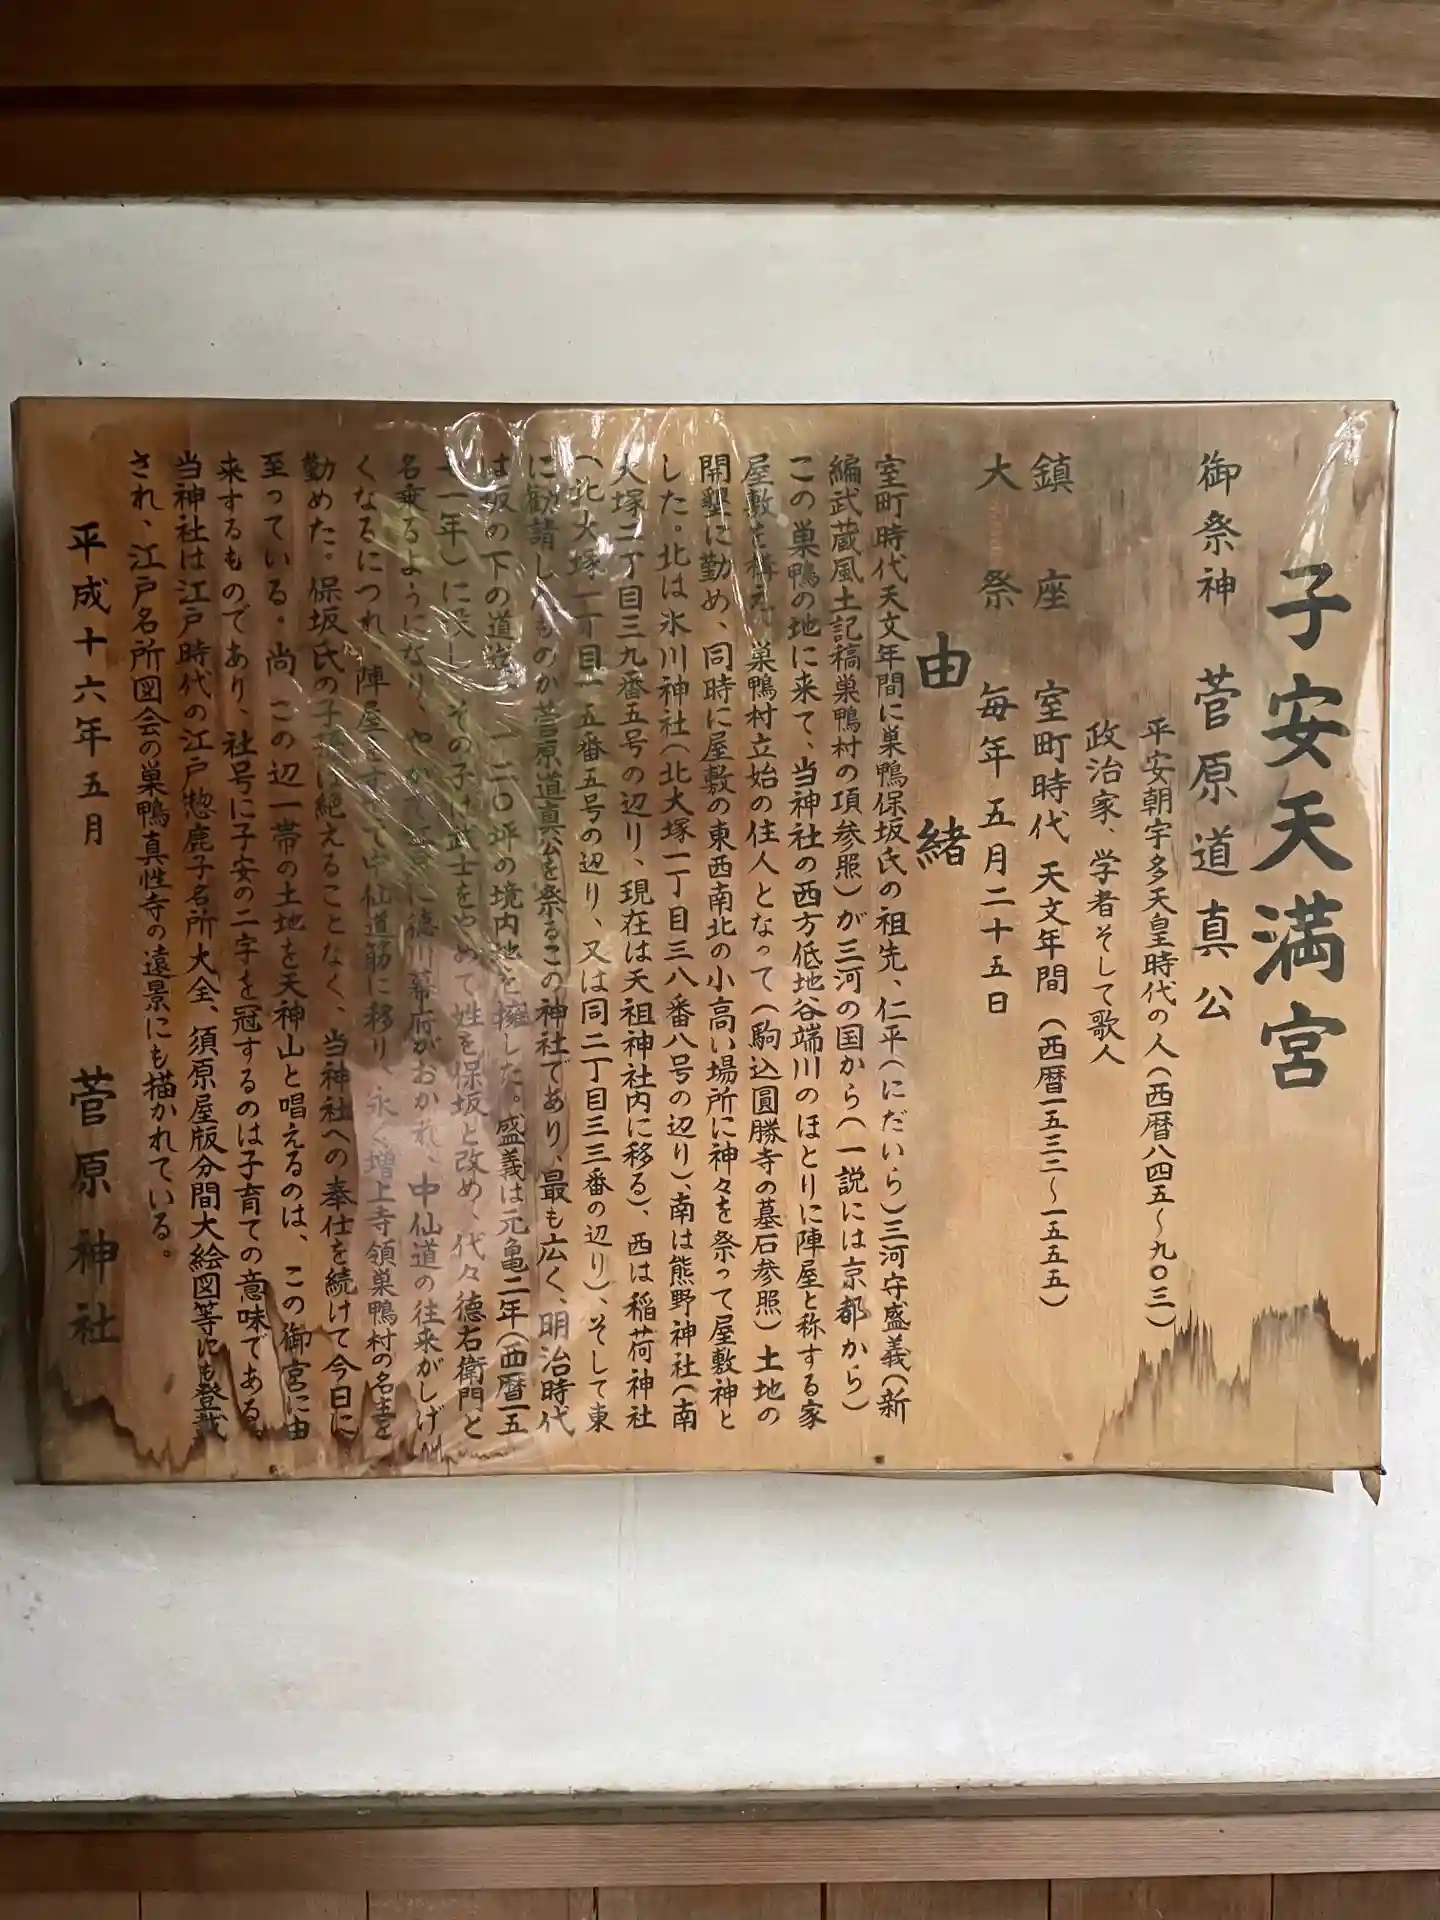 子安天満宮
御祭神 菅原道真公
平安朝宇多天皇時代の人(西暦八四五〜九〇三)
政治家、学者そして歌人
鎮座 室町時代 天文年間(西暦一五三二〜一五五五)
大祭 毎年五月二十五日
由緒
室町時代天文年間に巣鴨保坂氏の祖先、仁平(にだいら)三河守盛義(新
編武蔵風土記稿巣鴨村の項参照)が三河の国から(一説には京都から)
この巣鴨の地に来て、当神社の西方低地谷端川のほとりに陣屋と称する家
屋敷を構え、巣鴨村立始の住人となって(駒込圓勝寺の墓石参照)土地の
開墾に勤め、同時に屋敷の東西南北の小高い場所に神々を祭って屋敷神と
した。北は氷川神社(北大塚一丁目三八番八号の辺り)、南は熊野神社(南
大塚二丁目三九番五号の辺り、現在は天祖神社内に移る)、西は稲荷神社
(北大塚一丁目一五番五号の辺り、又は同二丁目三三番の辺り)、そして東
に勧請したものが菅原道真公を祭るこの神社であり、最も広く、明治時代
は坂の下の道迄、一一二〇坪の境内地を擁した。盛義は元亀二年(西暦一五
七一年)に没し、その子は武士をやめて姓を保坂と改め、代々徳右衛門と
名乗るようになり、やがて江戸に徳川幕府がおかれ、中仙道の往来がしげ
くなるにつれ、陣屋をすてて中仙道筋に移り、永く増上寺領巣鴨村の名主を
勤めた。保坂氏の子孫は絶えることなく、当神社への奉仕を続けて今日に
至っている。尚 この辺一帯の土地を天神山と唱えるのは、この御宮に由
来するものであり、社号に子安の二字を冠するのは子育ての意味である。
当神社は江戸時代の江戸惣鹿子名所大全、須原屋版分間大絵図等にも登載
され、江戸名所図会の巣鴨真性寺の遠景にも描かれている。
平成十六年五月 菅原神社